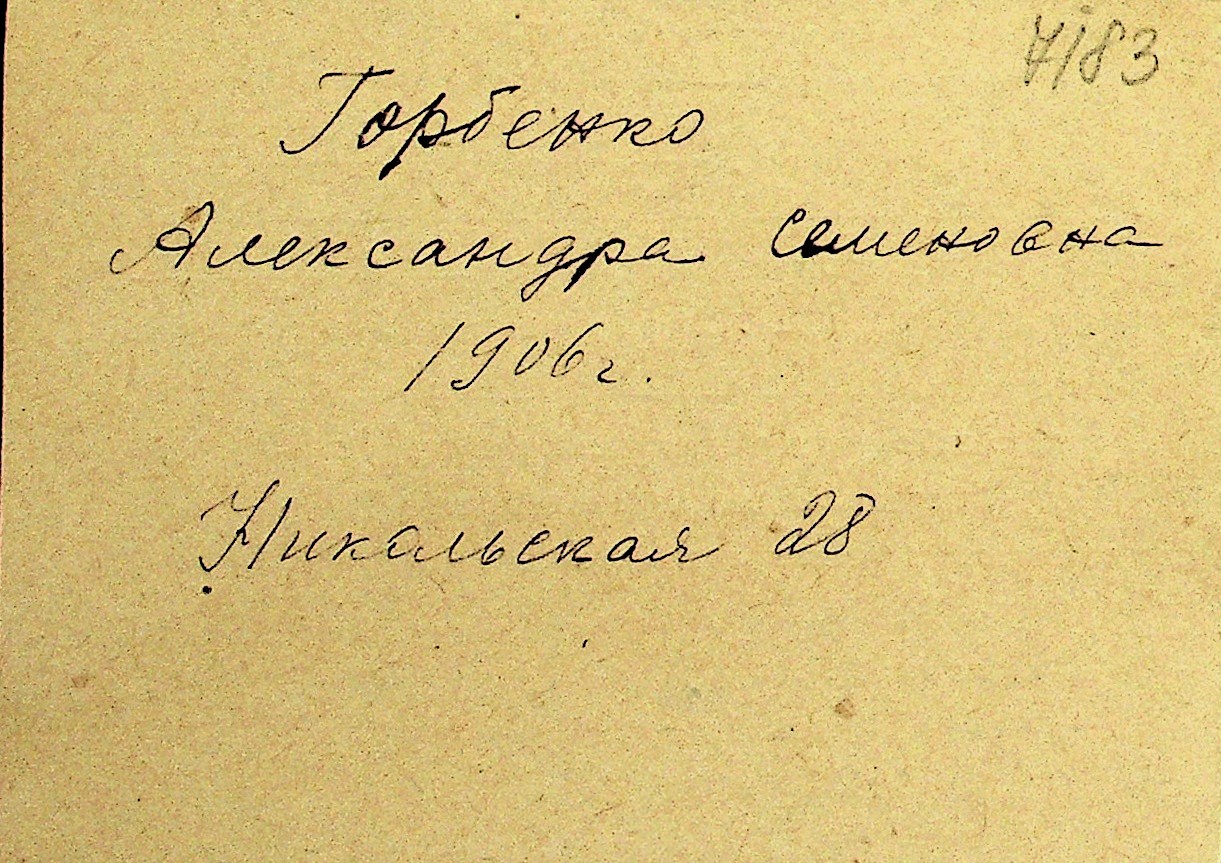 7183
Горбенко
Александра Семеновна
1906г.
Никольская 28